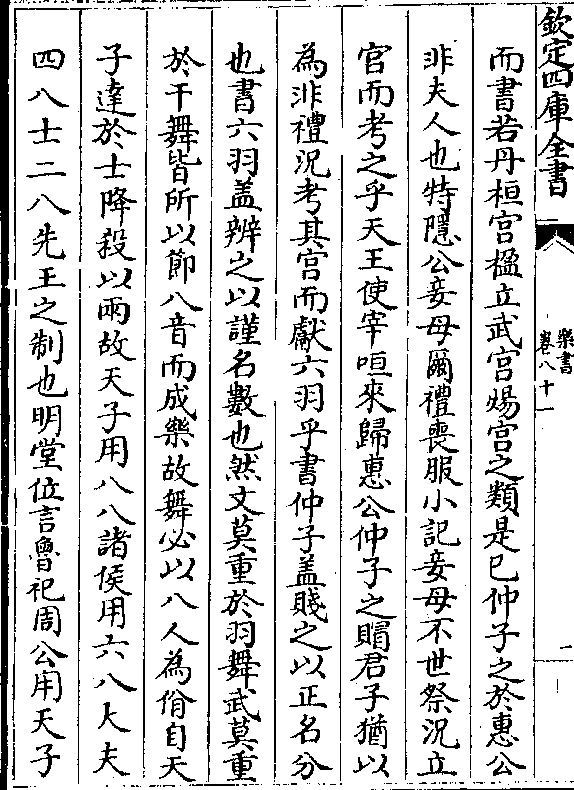 欽定四庫全書
樂書
卷八十一
一
而書若丹桓宫楹立武宫煬宫之類是已仲子之於惠公
非夫人也特隱公妾母爾禮喪服小記妾母不世祭況立
官而考之乎天王使宰咺來歸惠公仲子之賵君子猶以
為非禮況考其宫而獻六羽乎書仲子盖賤之以正名分
也書六羽盖辨之以謹名數也然文莫重於羽舞武莫重
於干舞皆所以節八音而成樂故舞必以八人為佾自天
子達於士降殺以兩故天子用八八諸侯用六八大夫
四八士二八先王之制也明堂位言魯祀周公用天子